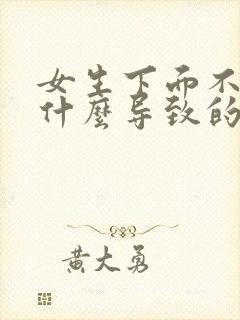 女生下而不
什麼导致的
黄大勇